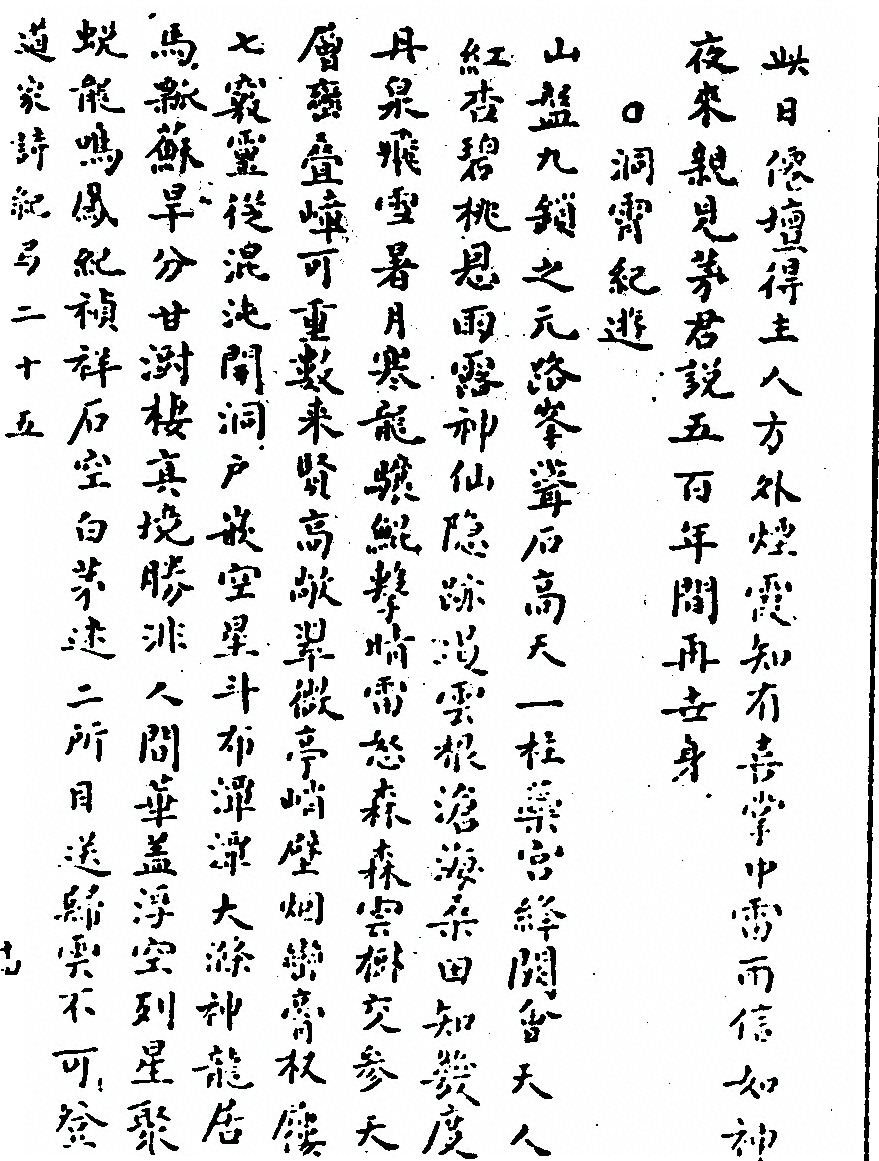 此日僊壇得主人方外煙霞知有喜掌中雷雨信如神
夜來親見茅君說五百年間再世身
〇洞霄紀遊
山盤九鎖之元路峯聳石高天一柱蘂宮絳闕會天人
紅杏碧桃思雨露神仙隐跡混雲根滄海桑田知幾度
丹泉飛雪暑月寒龍驤鯤擊晴雷怒森森雲樹交參天
層巒叠嶂可重數来賢高敞翠微亭峭壁烟巒膏杖屨
七竅靈從混沌開洞户嵌空星斗布潭潭大滌神龍居
馬瓢蘇旱分甘澍棲真境勝非人間華盖浮空列星聚
蜕龍鳴鳳紀禎祥石空白茅述二所目送歸雲不可登
道家詩紀弓二十五